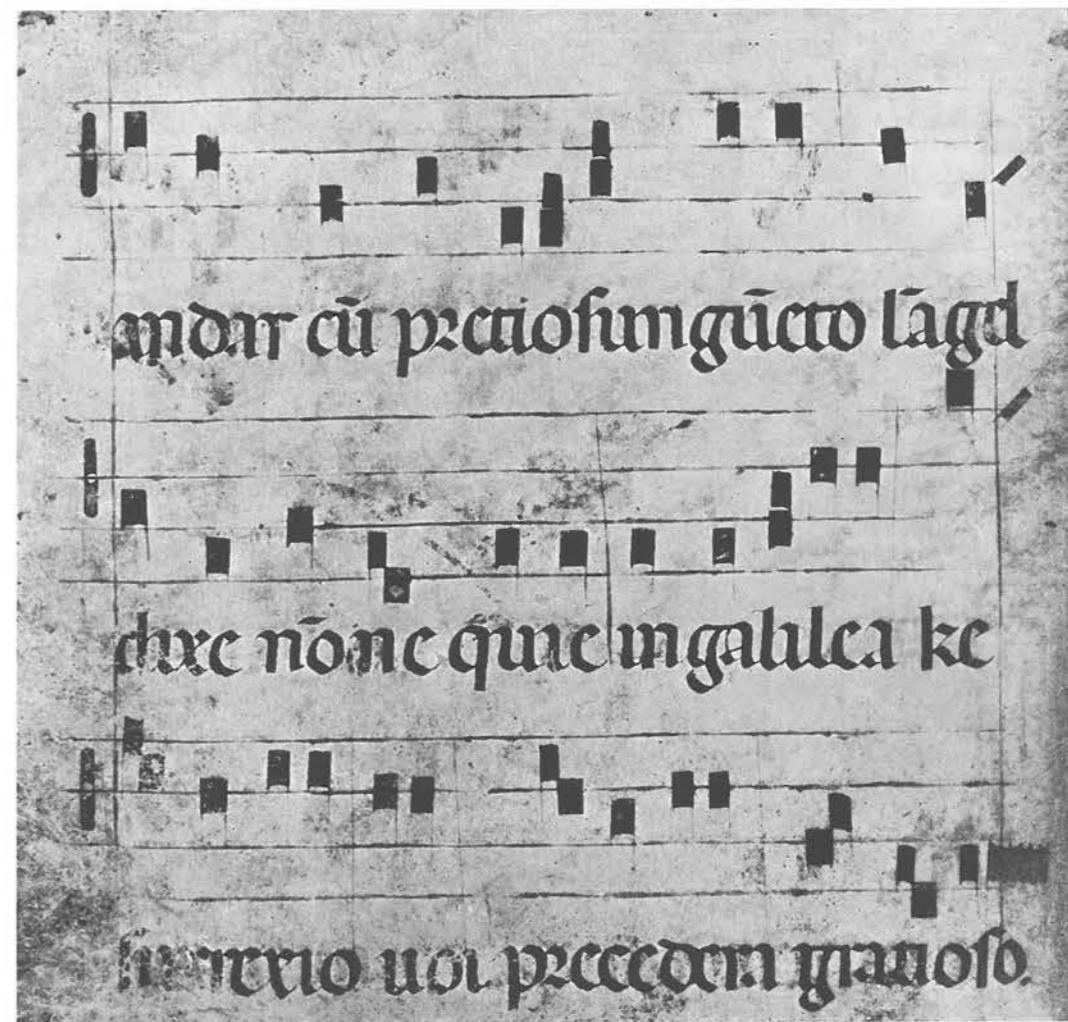 andar cū pretios ungūeto lāgel
dixe nōn e q̄ui e in galilea ke
uoi precedem gratioso.